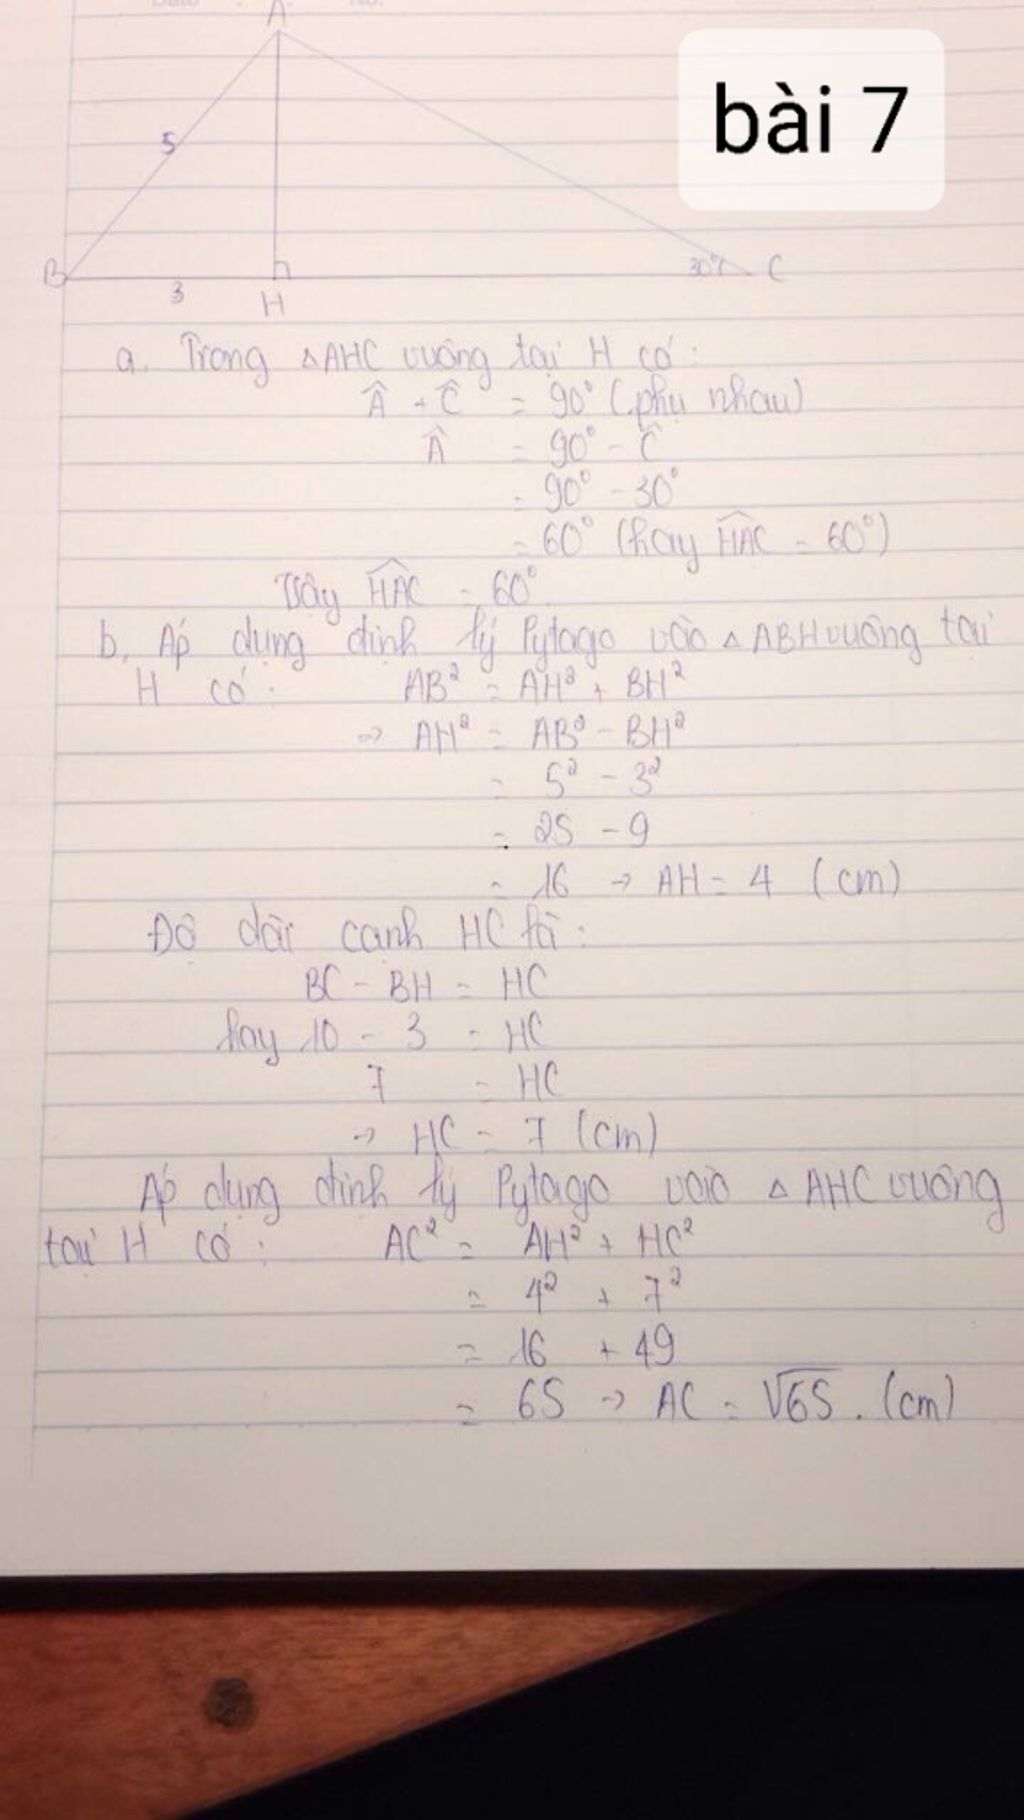 A
bài 7
5
B
3
H
30°
C
a. Trong △AHC vuông tại H có:
Â + Ĉ = 90° (phụ nhau)
Â = 90° - Ĉ
= 90° - 30°
= 60° (hay HAC = 60°)
Vậy HAC = 60°
b. Áp dụng định lý Pytago vào △ABH vuông tại
H có: AB² = AH² + BH²
=> AH² = AB² - BH²
= 5² - 3²
= 25 - 9
= 16 → AH = 4 (cm)
Độ dài cạnh HC là:
BC - BH = HC
hay 10 - 3 = HC
7 = HC
→ HC = 7 (cm)
Áp dụng định lý Pytago vào △AHC vuông
tại H có: AC² = AH² + HC²
= 4² + 7²
= 16 + 49
= 65 → AC = √65. (cm)